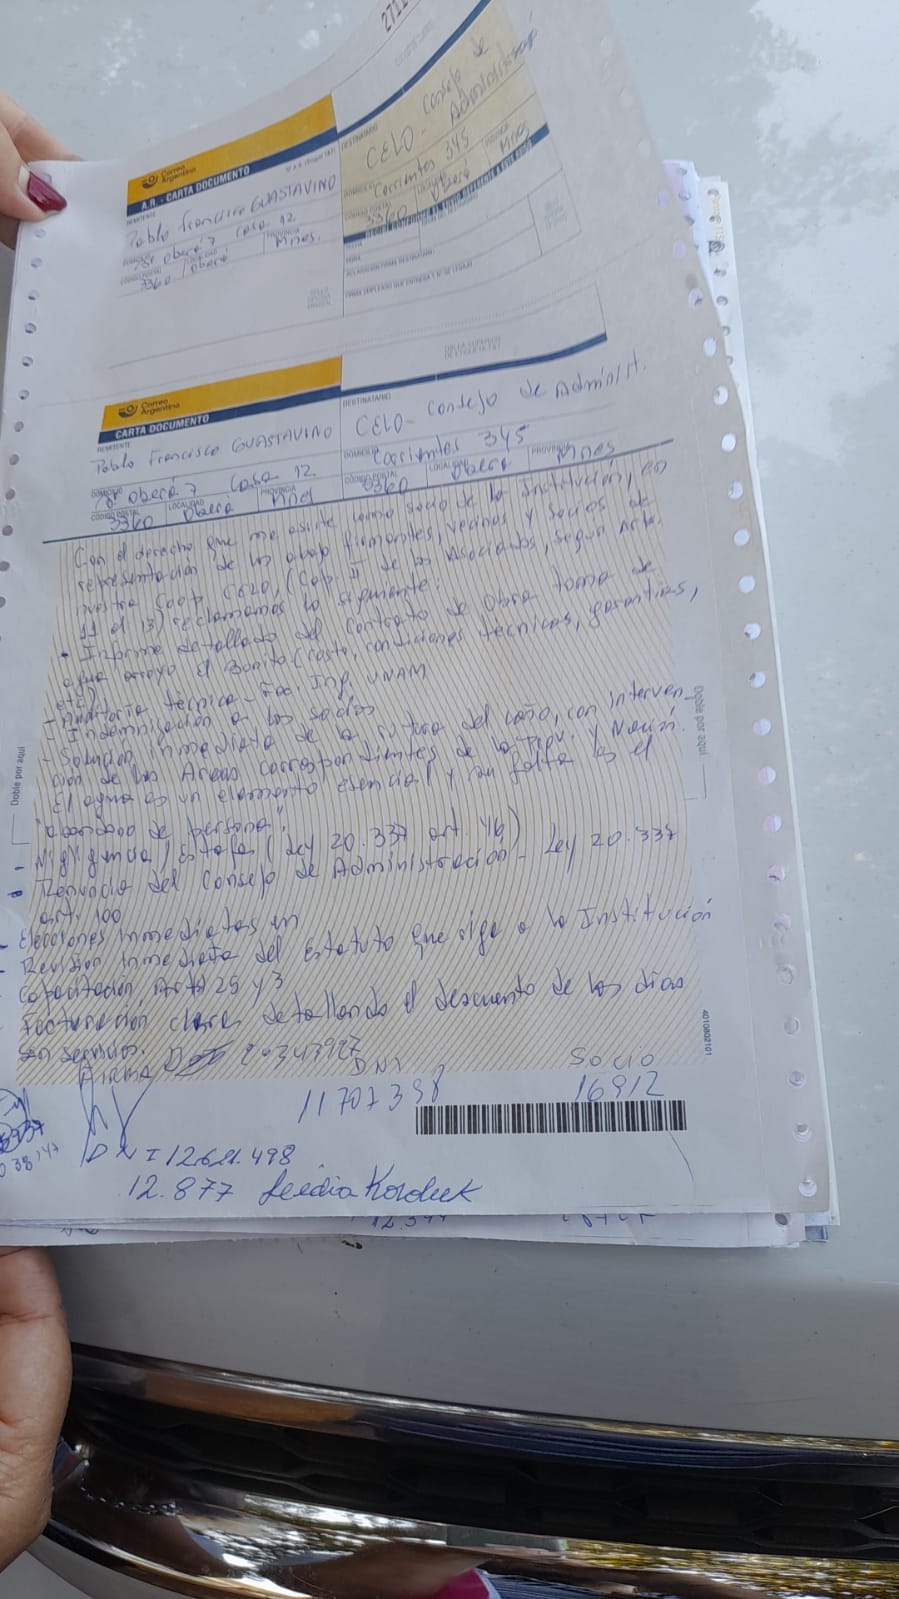 2711
Correo
Argentino
A.R. - CARTA DOCUMENTO
REMITENTE
Pablo Francisco GUASTAVINO
Oberá 7 Casa 12
CÓDIGO POSTAL LOCALIDAD PROVINCIA
3360 Oberá Mnes.
DESTINATARIO
CELO - Consejo de
Administración
DOMICILIO
Corrientes 345
CÓDIGO POSTAL LOCALIDAD PROVINCIA
3360 Oberá Mnes
Correo
Argentino
CARTA DOCUMENTO
REMITENTE
Pablo Francisco GUASTAVINO
DOMICILIO
Oberá 7 Casa 12
CÓDIGO POSTAL LOCALIDAD PROVINCIA
3360 Oberá Mnes
DESTINATARIO
CELO - Consejo de Administ.
DOMICILIO
Corrientes 345
CÓDIGO POSTAL LOCALIDAD PROVINCIA
3360 Oberá Mnes
Con el derecho que me asiste como socio de la Institución, en
representación de los abajo firmantes, vecinos y socios de
nuestra Coop. CELO, (Cap. II de los Asociados, según Arts.
11 al 13) reclamamos lo siguiente:
• Informe detallado del Contrato de Obra toma de
agua arroyo el Bonito (costo, condiciones técnicas, garantías,
etc)
- Auditoría técnica - Fac. Ing. UNAM
- Indemnización a los socios
- Solución inmediata de la rotura del caño, con interven
ción de las Areas correspondientes de la Prov. y Nación.
El agua es un elemento esencial y su falta es el
"abandono de persona".
- Negligencia / Estafa (Ley 20.337 art. 46)
- Renuncia del Consejo de Administración - Ley 20.337
art. 100
- Elecciones inmediatas en
Revisión inmediata del Estatuto que rige a la Institución
Capacitación Arts 25 y 3
Facturación clara detallando el descuento de los días
sin servicios.
Doble por aquí
Doble por aquí
4010802101
FIRMA
DNI
11707398
Socio
16912
DNI 12.621.498
12.877